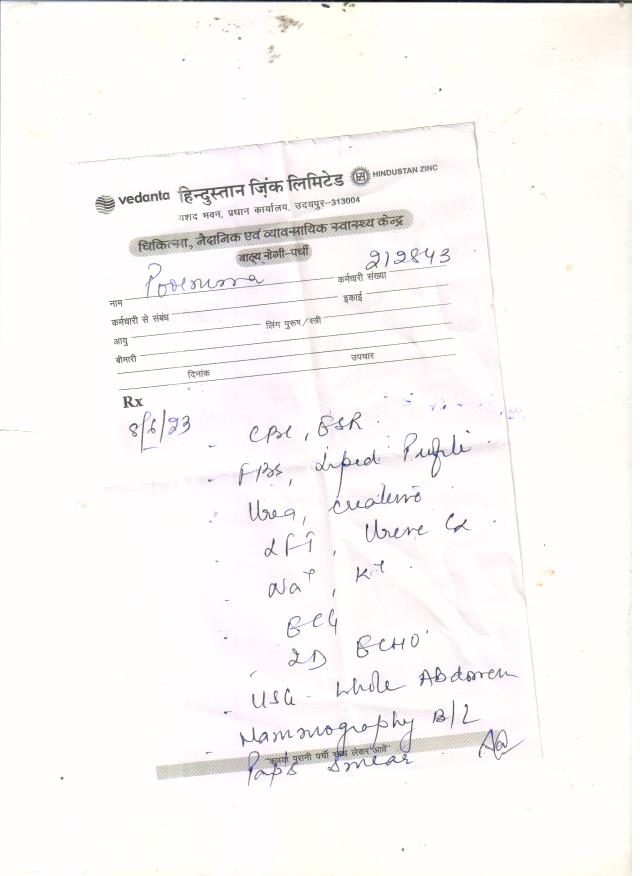 vedanta हिन्दुस्तान ज़िंक लिमिटेड HINDUSTAN ZINC
यशद भवन, प्रधान कार्यालय, उदयपुर-313004
चिकित्सा, नैदानिक एवं व्यावसायिक स्वास्थ्य केन्द्र
बाह्य रोगी-पर्ची
नाम Poornima कर्मचारी संख्या 212843
कर्मचारी से संबंध इकाई
आयु लिंग पुरूष/स्त्री
बीमारी
दिनांक उपचार
Rx
8/6/23
- CBC, ESR
- FBS, Lipid Profile
- Urea, Creatinine
- LFT, Urine
- Na+, K+
- ECG
- 2D ECHO
- USG - Whole Abdomen
- Mammography B/L
"कृपया पुरानी पर्ची साथ लेकर आवें"
Pap's Smear